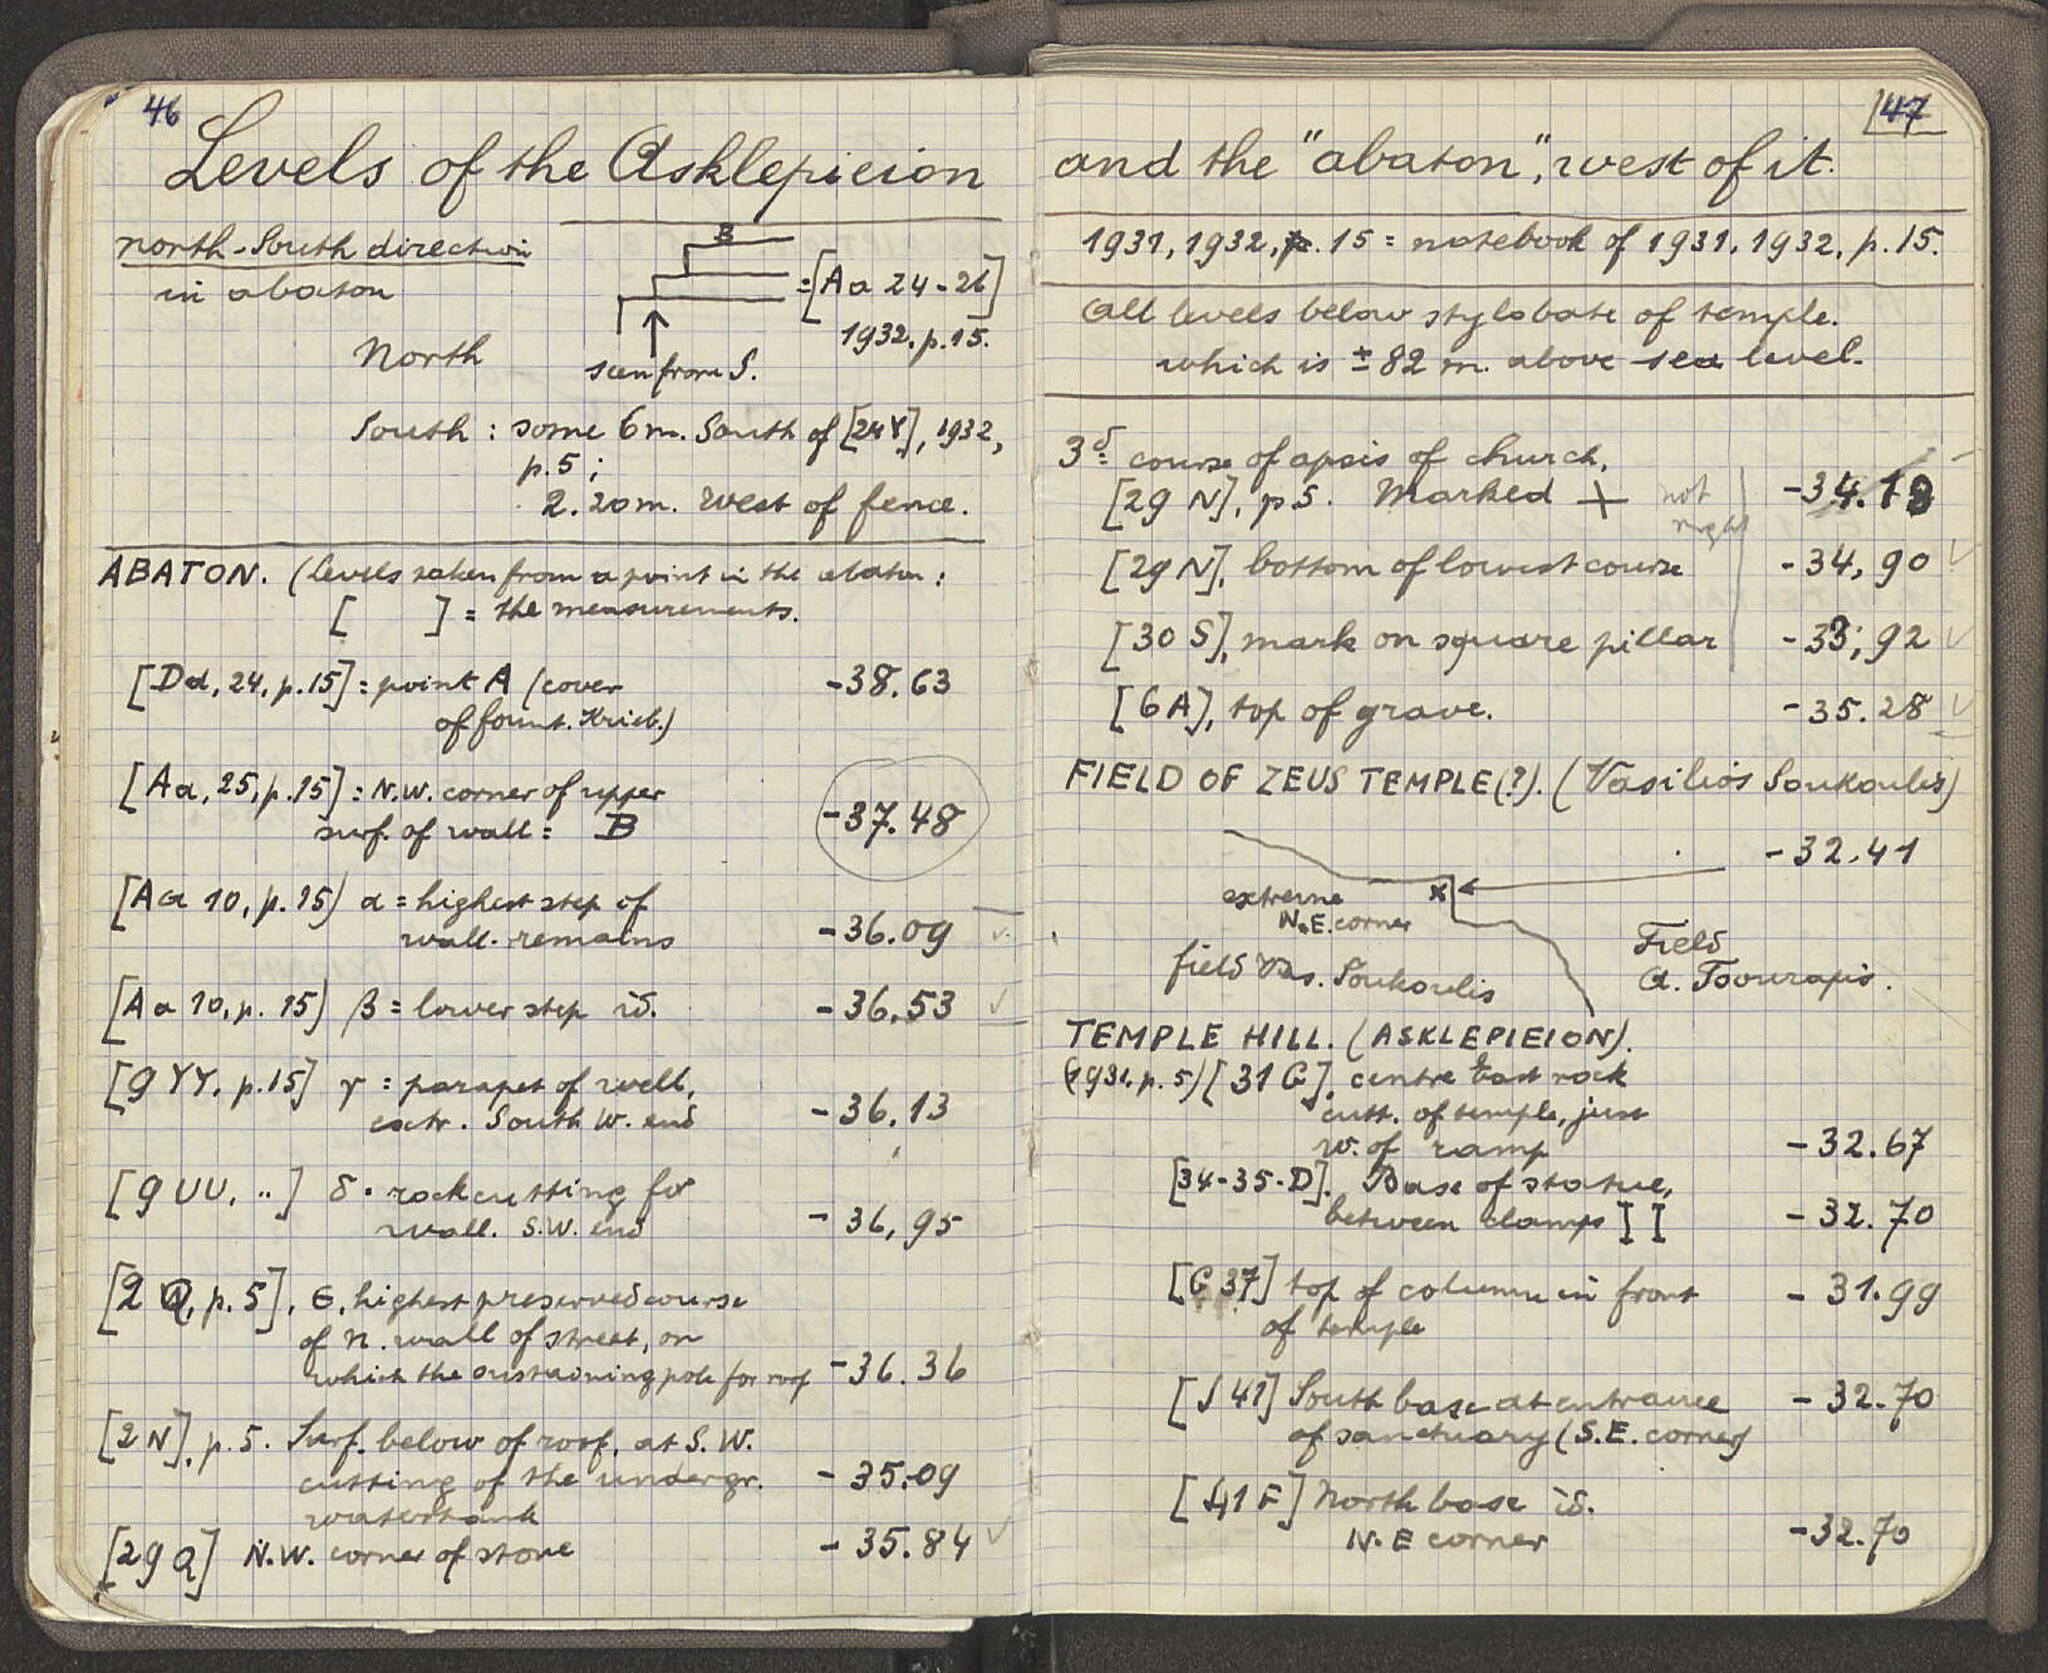 46
Levels of the Asklepieion
north-South direction
in abaton
B
=[Aa 24-26]
1932. p.15.
North
seen from S.
South : some 6 m. South of [24Y], 1932,
p.5 ;
2.20 m. West of fence.
ABATON. (Levels taken from a point in the abaton:
[ ] = the measurements.
[Dd, 24, p.15] = point A (cover
of fount. Krieb.) -38.63
[Aa, 25, p.15] = N.W. corner of upper
surf. of wall = B -37.48
[Aa 10, p.15) α = highest step of
wall. remains -36.09
[Aa 10, p. 15) β = lower step id. -36.53
[9 YY, p.15] γ = parapet of well,
extr. South W. end -36.13
[9 UU, ..] δ. rockcutting for
wall. S.W. end -36,95
[2 Q, p.5], Є, highest preserved course
of n. wall of street, on
which the sustaining pole for roof -36.36
[2 N], p.5. Surf. below of roof, at S.W.
cutting of the undergr. -35.09
watertank
[29 Q] N.W. corner of stone -35.84
[47
and the "abaton", west of it.
1931, 1932, p. 15 = notebook of 1931, 1932, p.15.
All levels below stylobate of temple.
which is ± 82 m. above sea level.
3d course of apsis of church,
[29 N], p 5. Marked + not right -34.
[29 N], bottom of lowest course -34,90
[30 S], mark on square pillar -33,92
[6A], top of grave. -35.28
FIELD OF ZEUS TEMPLE(?). (Vasilios Soukoulis)
-32.41
extreme x
N.E. corner
field Vas. Soukoulis
Field
A. Tsourapis.
TEMPLE HILL. (ASKLEPIEION).
(1931, p. 5) [31 G], centre East rock
cutt. of temple, just
w. of ramp -32.67
[34-35-D]. Base of statue,
between clamps I I -32.70
[G 37] top of column in front -31.99
of temple
[J 41] South base at entrance -32.70
of sanctuary (S.E. corner)
[41 F] North base id.
N.E corner -32.70